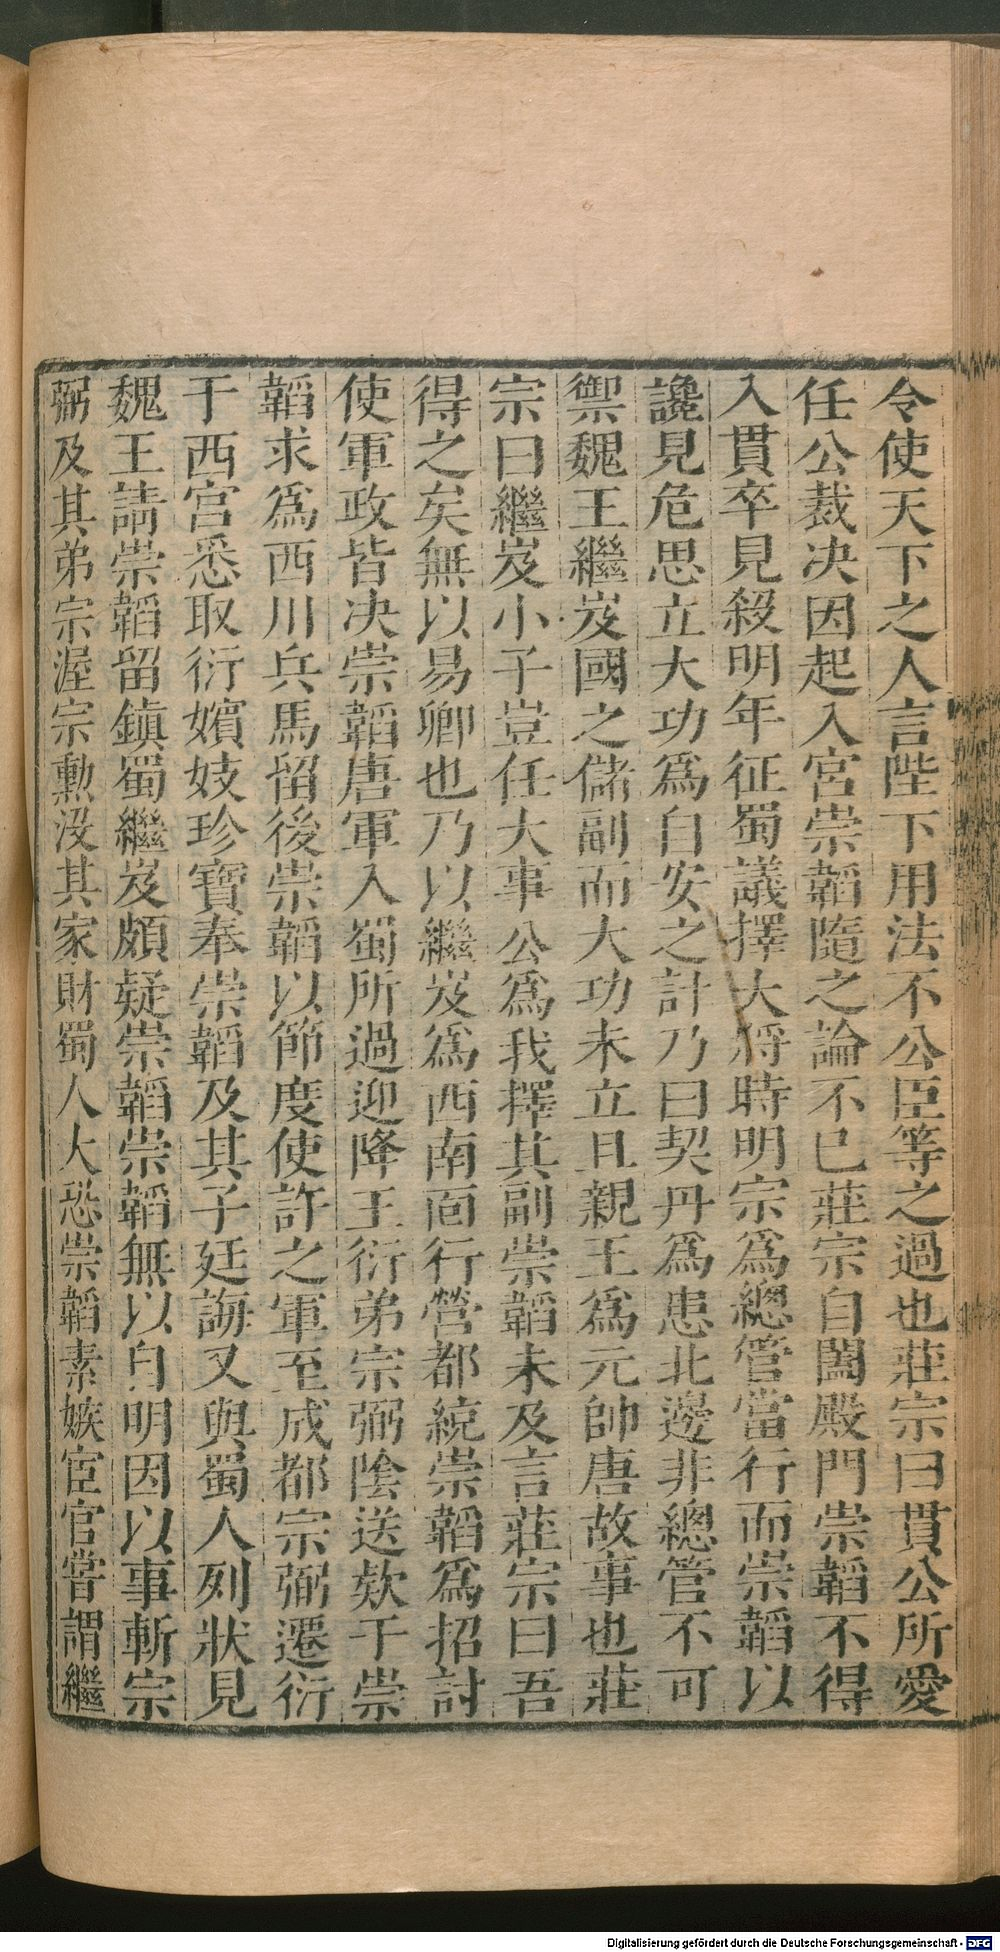 令使天下之人言陛下用法不公臣等之過也莊宗曰貫公所愛
任公裁决因起入宮崇韜隨之論不已莊宗自闔殿門崇韜不得
入貫卒見殺明年征蜀議擇大將時明宗爲總管當行而崇韜以
讒見危思立大功爲自安之計乃曰契丹爲患北邊非總管不可
禦魏王繼岌國之儲副而大功未立且親王爲元帥唐故事也莊
宗曰繼岌小子豈任大事公爲我擇其副崇韜未及言莊宗曰吾
得之矣無以易卿也乃以繼岌爲西南面行營都統崇韜爲招討
使軍政皆决崇韜唐軍入蜀所過迎降王衍弟宗弼陰送欵于崇
韜求爲西川兵馬留後崇韜以節度使許之軍至成都宗弼遷衍
于西宮悉取衍嬪妓珍寶奉崇韜及其子廷誨又與蜀人列狀見
魏王請崇韜留鎮蜀繼岌頗疑崇韜崇韜無以自明因以事斬宗
弼及其弟宗渥宗勳没其家財蜀人大恐崇韜素嫉宦官嘗謂繼
Digitalisierung gefördert durch die Deutsche Forschungsgemeinschaft - DFG